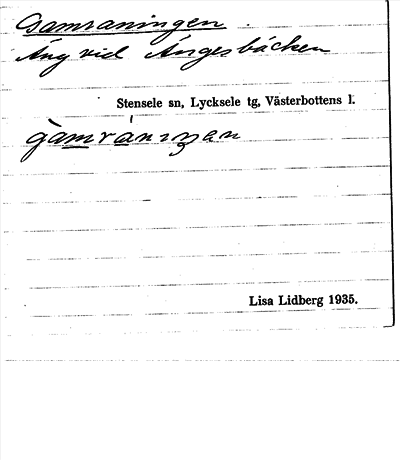 Gamraningen
Äng vid Ängesbäcken
Stensele sn, Lycksele tg, Västerbottens l.
gàmránıŋan
Lisa Lidberg 1935.